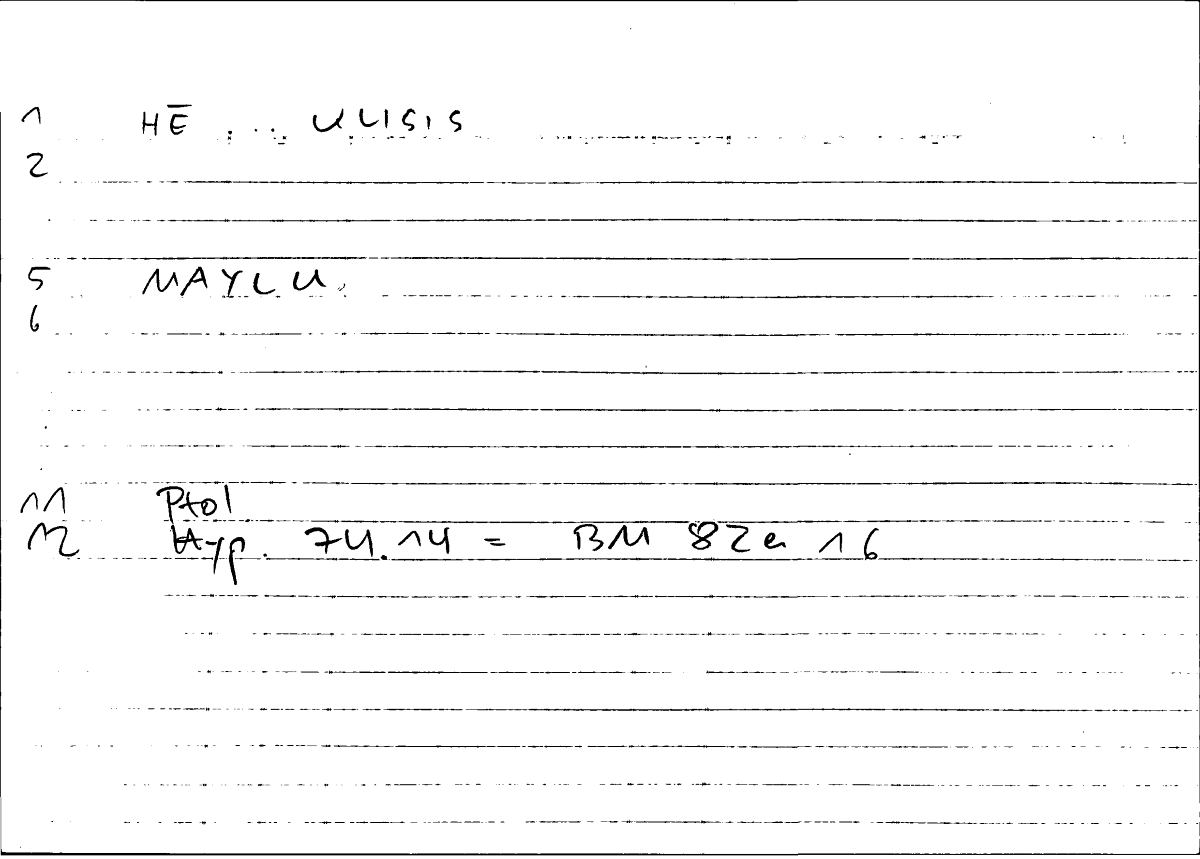 1 HĒ : ... ULISIS
2
5 MAYLU.
6
11 Ptol
12 Hyp. 74.14 = BM 82a 16